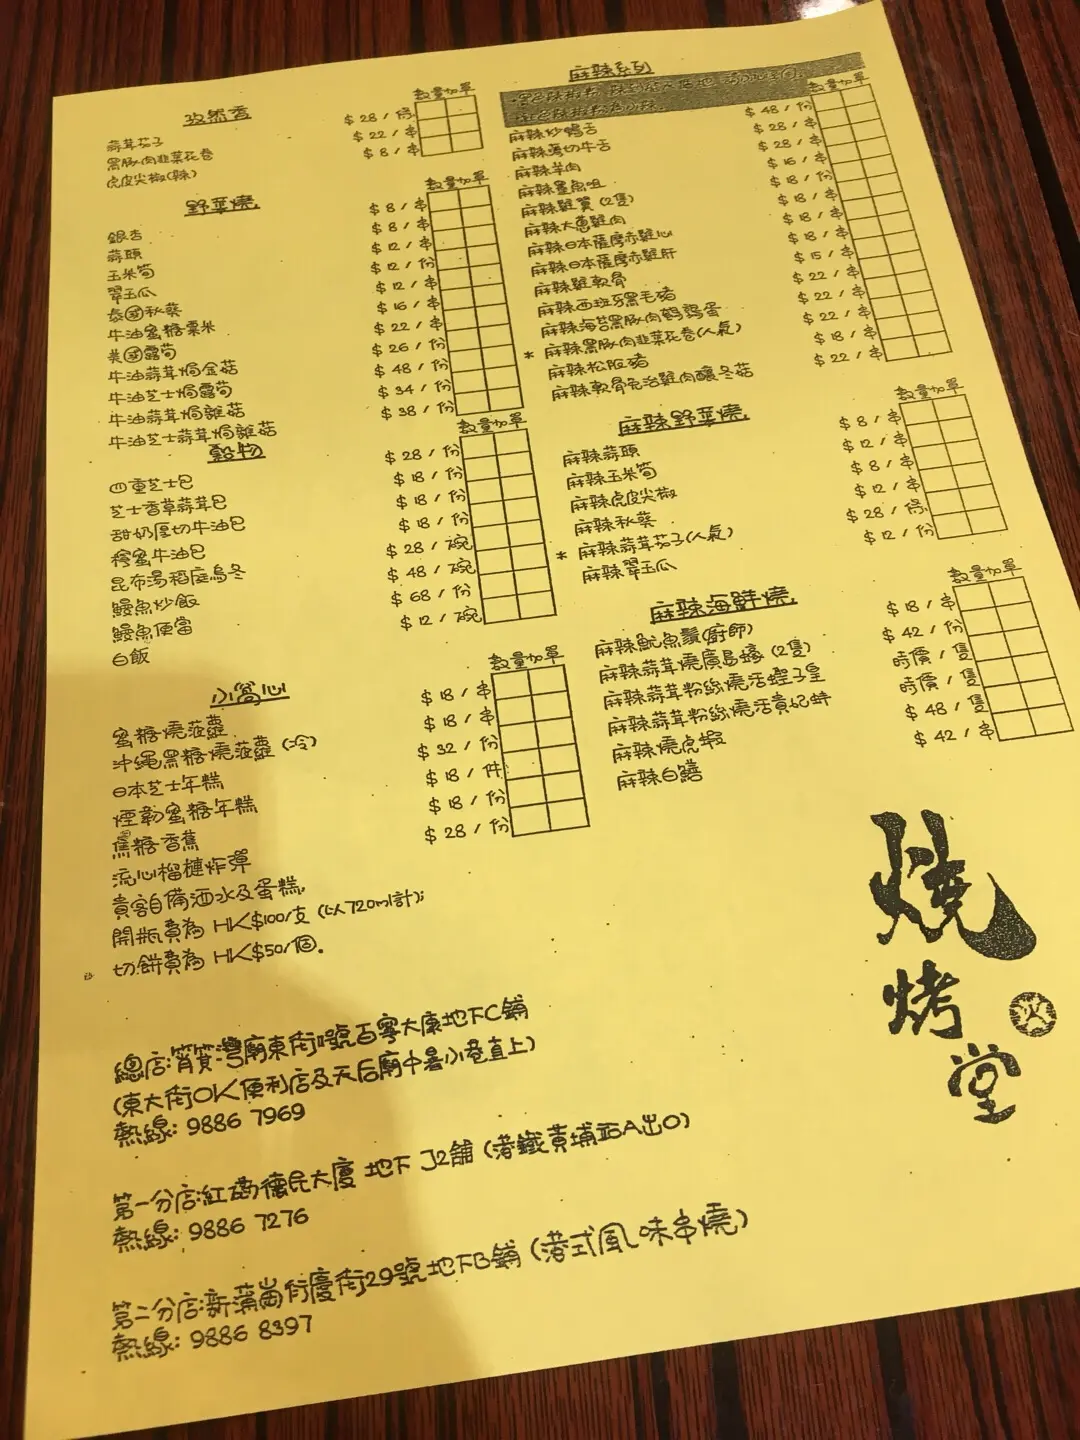 孜然香
數量 加單
蒜茸茄子 $28/條
黑豚肉韮菜花卷 $22/串
虎皮尖椒(辣) $8/串
野菜燒
數量 加單
銀杏 $8/串
蒜頭 $8/串
玉米筍 $12/串
翠玉瓜 $12/份
泰國秋葵 $12/串
牛油蜜糖粟米 $16/串
美國露筍 $22/串
牛油蒜茸焗金菇 $26/份
牛油芝士焗露筍 $48/份
牛油蒜茸焗雜菇 $34/份
牛油芝士蒜茸焗雜菇 $38/份
穀物
數量 加單
四重芝士包 $28/份
芝士香草蒜茸包 $18/份
甜奶厚切牛油包 $18/份
檸蜜牛油包 $18/份
昆布湯稻庭烏冬 $28/碗
鰻魚炒飯 $48/碗
鰻魚便當 $68/份
白飯 $12/碗
小窩心
數量 加單
蜜糖燒菠蘿 $18/串
沖繩黑糖燒菠蘿(冷) $18/串
日本芝士年糕 $32/份
煙韌蜜糖年糕 $18/件
焦糖香蕉 $18/份
流心榴槤炸彈 $28/份
貴客自備酒水及蛋糕,
開瓶費為 HK$100/支 (以720ml計);
切餅費為 HK$50/個。
麻辣系列
數量 加單
麻辣炒鴨舌 $48/份
麻辣薄切牛舌 $28/串
麻辣羊肉 $28/串
麻辣墨魚咀 $16/串
麻辣雞翼(2隻) $18/份
麻辣大蔥雞肉 $18/串
麻辣日本薩摩赤雞心 $18/串
麻辣日本薩摩赤雞肝 $18/串
麻辣雞軟骨 $15/串
麻辣西班牙黑毛豬 $22/串
麻辣海苔黑豚肉鵪鶉蛋 $22/串
* 麻辣黑豚肉韮菜花卷(人氣) $22/串
麻辣松阪豬 $18/串
麻辣軟骨免治雞肉釀冬菇 $22/串
麻辣野菜燒
數量 加單
麻辣蒜頭 $8/串
麻辣玉米筍 $12/串
麻辣虎皮尖椒 $8/串
麻辣秋葵 $12/串
* 麻辣蒜茸茄子(人氣) $28/條
麻辣翠玉瓜 $12/份
麻辣海鮮燒
數量 加單
麻辣魷魚鬚(廚師) $18/串
麻辣蒜茸燒廣島蠔(2隻) $42/份
麻辣蒜茸粉絲燒活蟶子皇 時價/隻
麻辣蒜茸粉絲燒活貴妃蚌 時價/隻
麻辣燒虎蝦 $48/隻
麻辣白鱔 $42/串
燒
烤
堂
總店:筲箕灣廟東街 號百寧大廈地下C舖
(東大街OK便利店及天后廟中暑小巷直上)
熱線: 9886 7969
第一分店:紅磡德民大廈地下 J2舖 (港鐵黃埔站A出口)
熱線: 9886 7276
第二分店:新蒲崗衍慶街29號地下B舖 (港式風味串燒)
熱線: 9886 8397